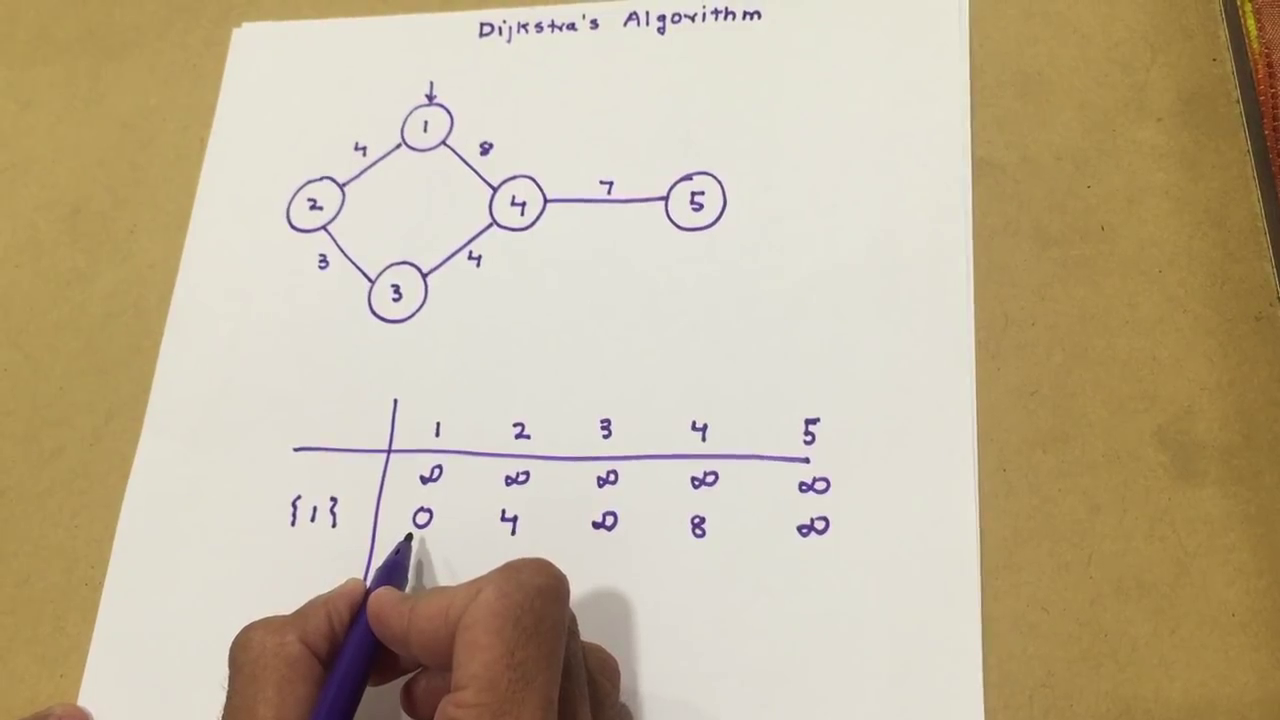 Dijkstra's Algorithm
1
4 8
2 4 7 5
3 4
3
1 2 3 4 5
∞ ∞ ∞ ∞ ∞
{1} 0 4 ∞ 8 ∞